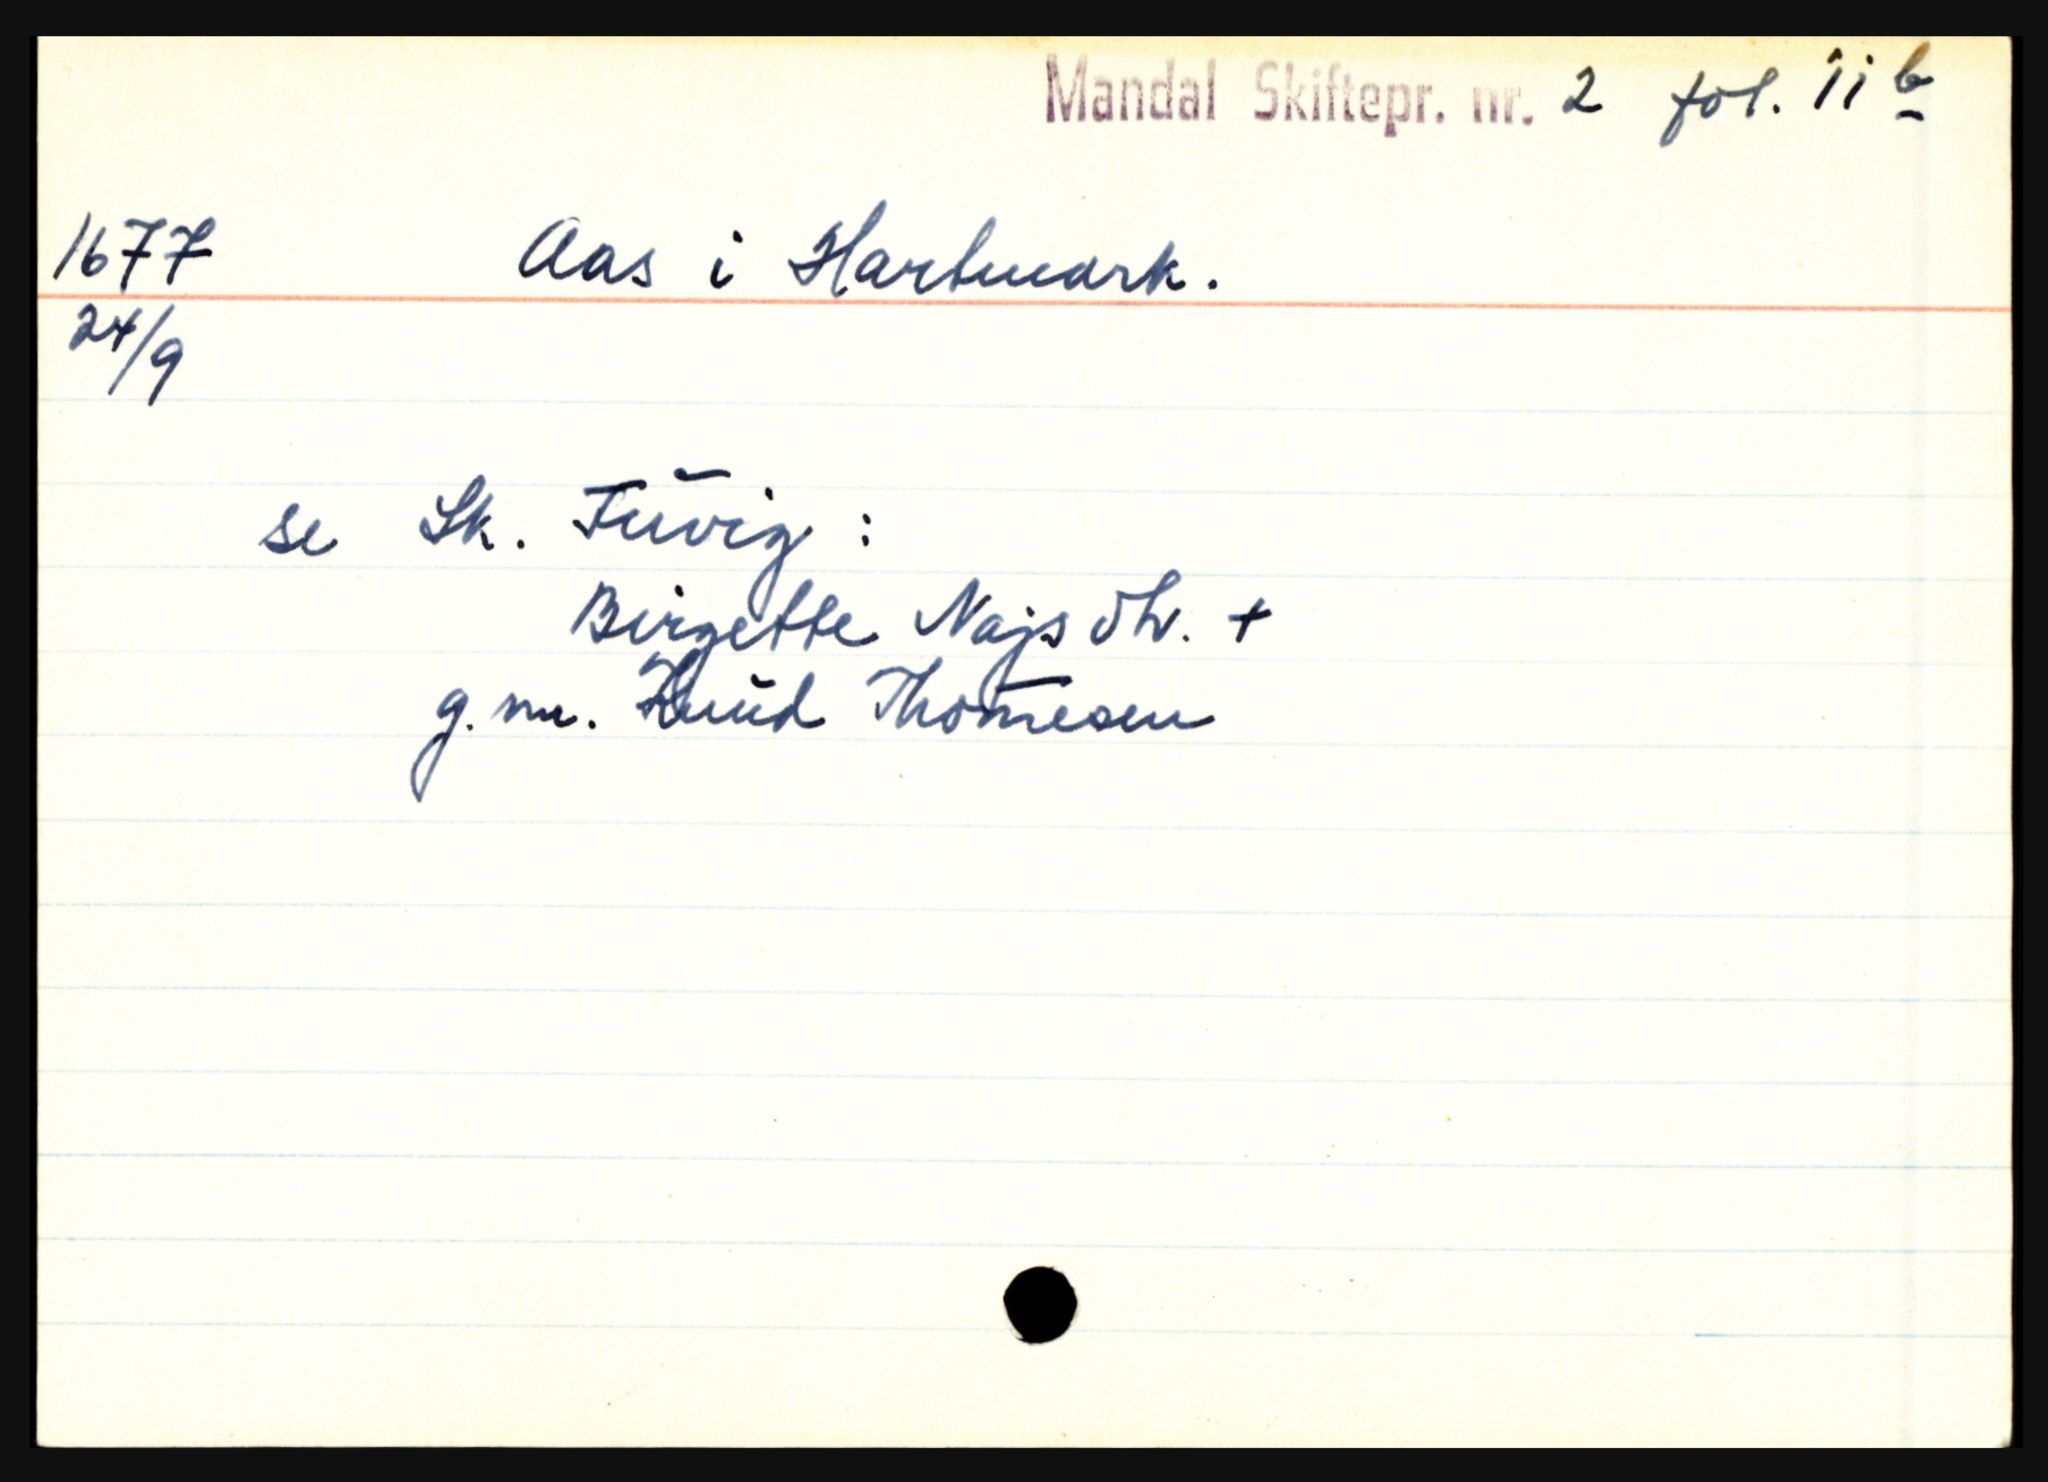 Mandal Skiftepr. nr. 2 fol. 11 b
1677 Aas i Hartmark.
24/9
se Sk. Tuvig:
Birgette Najs dtr. +
g. m. Knud Thomesen